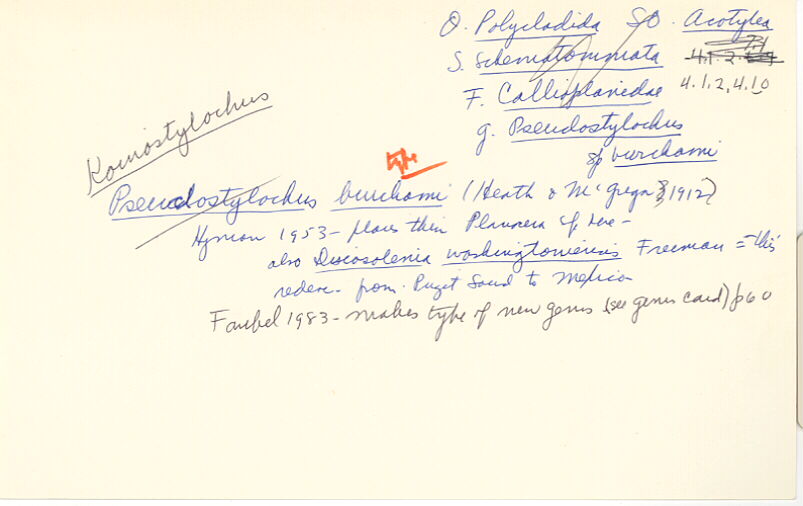 O. Polycladida SO. Acotylea
S. Schematommata 4.1.2.
F. Callioplanidae 4.1.2.4.10
g. Pseudostylochus
sp burchami
Koinostylochus
type
Pseudostylochus burchami (Heath & McGregor 1912)
Hyman 1953 - places their Planocera sp here -
also Discosolenia washingtoniensis Freeman = this
redesc - from Puget Sound to Mexico
Faubel 1983 - makes type of new genus (see genus card) p60